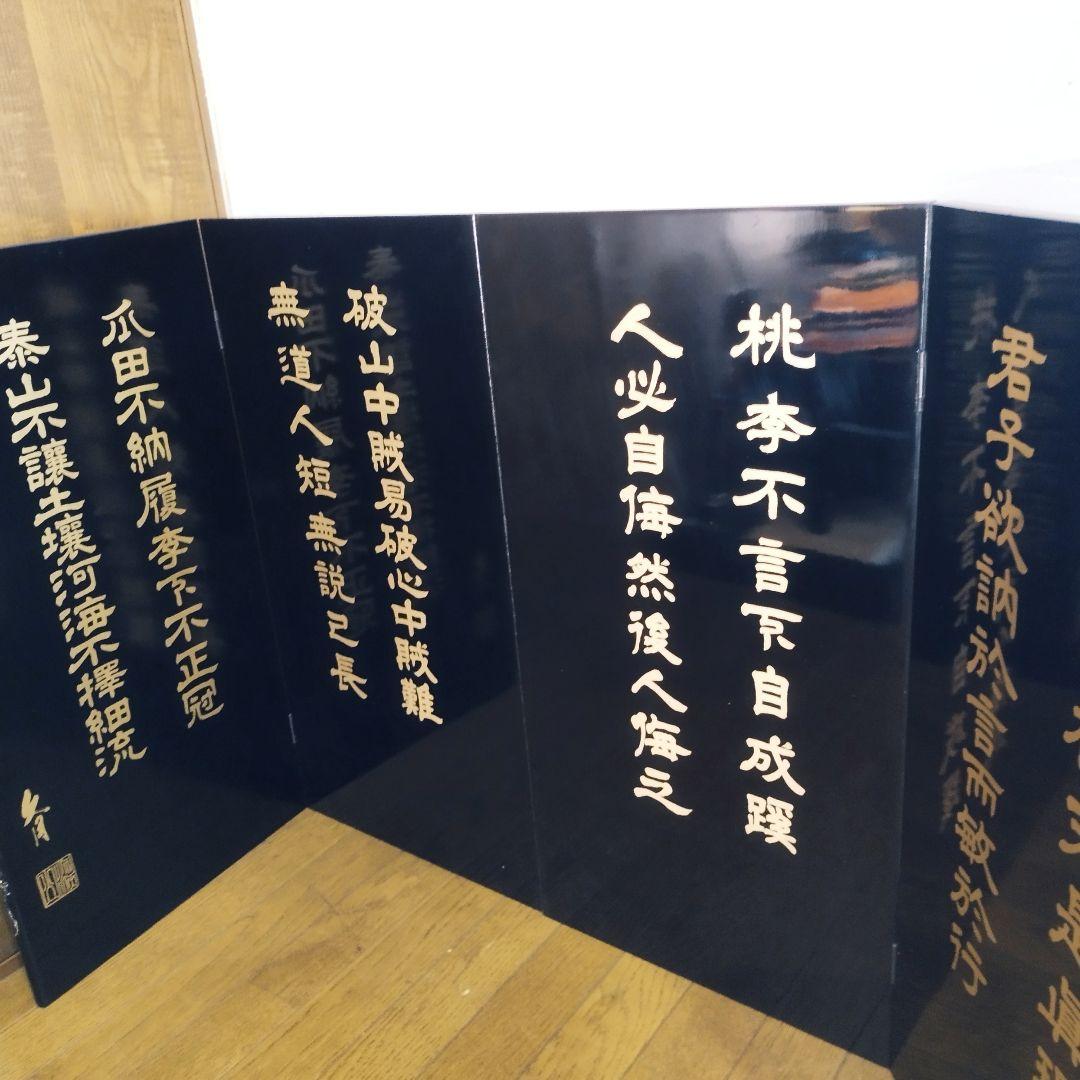 君子欲訥於言而敏於行
桃李不言下自成蹊
人必自侮然後人侮之
破山中賊易破心中賊難
無道人短無説己長
瓜田不納履李下不正冠
泰山不讓土壤河海不擇細流